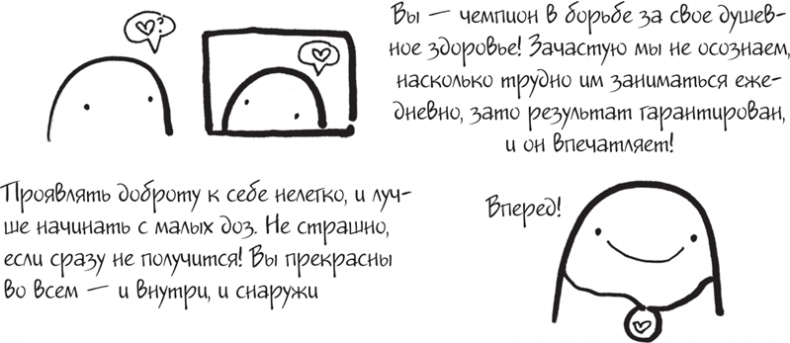 Вы — чемпион в борьбе за свое душев-
ное здоровье! Зачастую мы не осознаем,
насколько трудно им заниматься еже-
дневно, зато результат гарантирован,
и он впечатляет!
Проявлять доброту к себе нелегко, и луч-
ше начинать с малых доз. Не страшно,
если сразу не получится! Вы прекрасны
во всем — и внутри, и снаружи
Вперед!
?